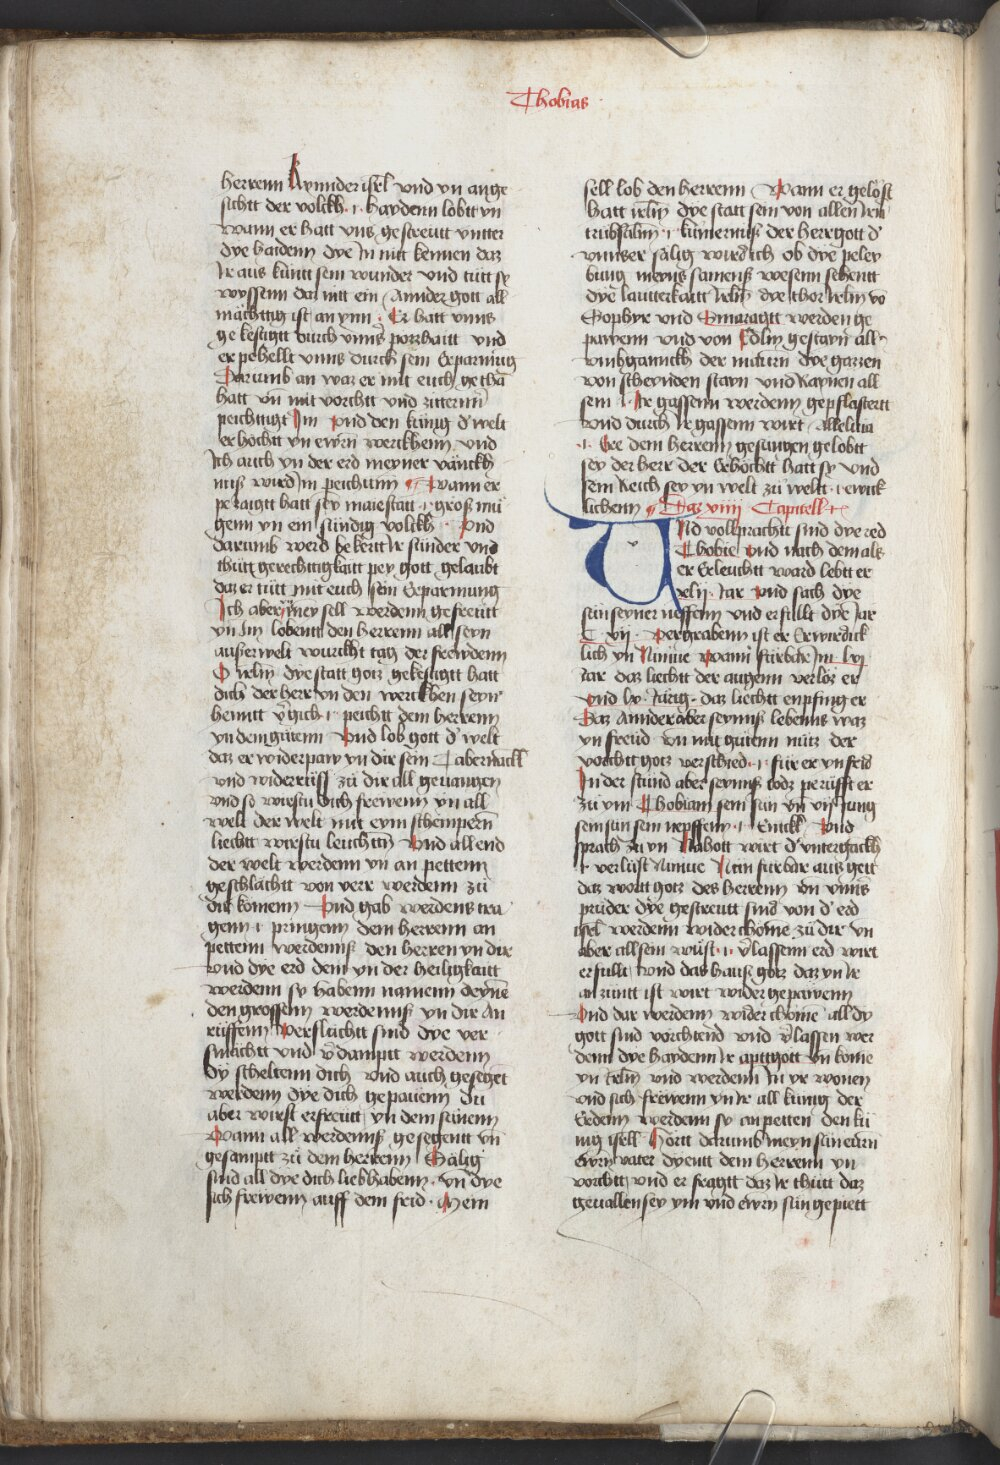 Thobias
herrenn kynnder isrl vnd yn ange
sichtt der volckh · i · haydenn lobtt yn
wann er hatt vns gestreutt vntter
dye haidenn dye In nitt kennen daz
Ir aus künt sein wunder vnd tütt sy
wyssenn daz nitt ein Annder gott all
mächttig ist an ynn · Er hatt vnns
ge kestigtt durch vnns poszhaitt vnd
er pehellt vnns durch sein Erparmüng
Darumb an waz er mit euch gethā
hatt vn mit vorchtt vnd zitternn
peichttigt Im vnd den küng d' welt
er höchtt yn ewrn werckhenn vnd
Ich auch yn der erd meyner vänckh
nuß wird Im peichunn Wann er
pezaigtt hatt sey maiestatt · i · groß mü
genn yn ein sündig volckh · Vnd
darumb werd bekertt Ir sünder vnd
thütt gerechtigkaitt pey gott gelaubt
daz er tütt mit euch sein Erparmung
Ich aber mey sell werdenn gefreütt
yn Im lobentt den herrenn all seyn
außerwelt wurckht tag der frewdenn
O irlm dye statt gotz gekestigtt hatt
dich der herr yn den werckhen seyn'
henntt v'gich · i · peichtt dem herrenn
yn dem gütenn Vnd lob gott d' welt
daz er widerpaw yn dir sein Tabernackl
vnd widerrüff zü dir all geuangen
vnd so wirstu dich frewenn yn all
welt der welt mit eym schempern
liechtt wirstu leuchttn Vnd all end
der welt werdenn yn an pettenn
geschlächtt von verr werdenn zü
dir komenn Vnd gab werdens tra
genn · i · pringenn dem herrenn an
pettenn werdennß den herren yn dir
vnd dye erd dein yn der heiligkaitt
werdenn sy habenn namenn deynē
den grossenn werdennß yn dir An
rüffenn Verflüchtt sind dye ver
smächtt vnd v'damptt werdenn
dy scheltenn dich vnd auch gesegēt
werdenn dye dich gepauenn du
aber wirst erfreütt yn dem sünenn
Wann all werdennß gesegentt vn
gesamptt zü dem herrenn Sälig
sind all dye dich liebhabenn · yn dye
sich frewenn auff dem frid · Mein
sell lob den herrenn Wann er gelöst
hatt irlm dye statt sein von allen Irn
trübsaln · i · kümernuß der herrgott d'
vnnser sälig wurd ich ob dye peley
bung meyns samenß wesenn sehentt
dye lautterkaitt irlm dye thor irlm vō
Sophyr vnd Smaragtt werden ge
pawenn vnd von Edlm gestayn all
vmbganckh der mawrn dye gazzen
von scheynden stayn vnd Raynen all
sein · i · Ir gassenn werdenn gepflastertt
vnd durch Ir gassenn wirt Alleluia
· i · Ere dem herrenn gesungen gelobtt
sey der herr der Erhöchtt hatt sy vnd
sein Reich sey yn welt zü weltt · i · ewick
lichenn Daz xiiii Capitell
Und vollprachtt sind dye red
Thobie vnd nach dem als
er Erleuchtt ward lebtt er
xlij · Jar Vnd sach dye
sün seyner neffenn vnd erfullt dye Jar
C vij · Pergrabenn ist er Erwirdick
lich yn Niniue Wann fürbar Im lvj
Jar daz liechtt der augenn verlöz er
vnd lx · Järig · daz liechtt enpfing er
Daz Annder aber seynnß lebenns waz
yn freüd vn mit gütenn nütz der
vorchtt gotz verschied · i · für er yn frid
In der stünd aber seynnß todz perüfft er
zü ym Thobiam sein sün vn vij Jung
sein sün sein neyffenn · i · Enickl Vnd
sprach zu yn Nahott wirt d' vntergāckh
· i · verlüst Niniue Nein fürbar aus gett
daz wortt gotz des herrenn vn vnns
prüder dye gestreutt sind von d' erd
isrl werdenn wider chōme zü dir vn
aber all sein wüst · i · v'lassenn erd wirt
erfullt vnd das hauß gotz daz yn Ir
an zuntt ist wirt wider gepawenn
Vnd dar werdenn wider chōme all dy
gott sind vorchtend vnd v'lassen wer
denn dye haydenn Ir aptgott vn kome
yn irlm vnd werdenn In yr wonen
vnd sich frewenn yn Ir all künig der
Erdenn werdenn sy anpetten den kü
nig isrl Hörtt darumb meyn sün ewrn
Ewrn vater dyentt dem herrenn yn
vorchtt vnd er fragtt daz Ir thütt daz
geuallen sey ym vnd ewrn sün gepiett